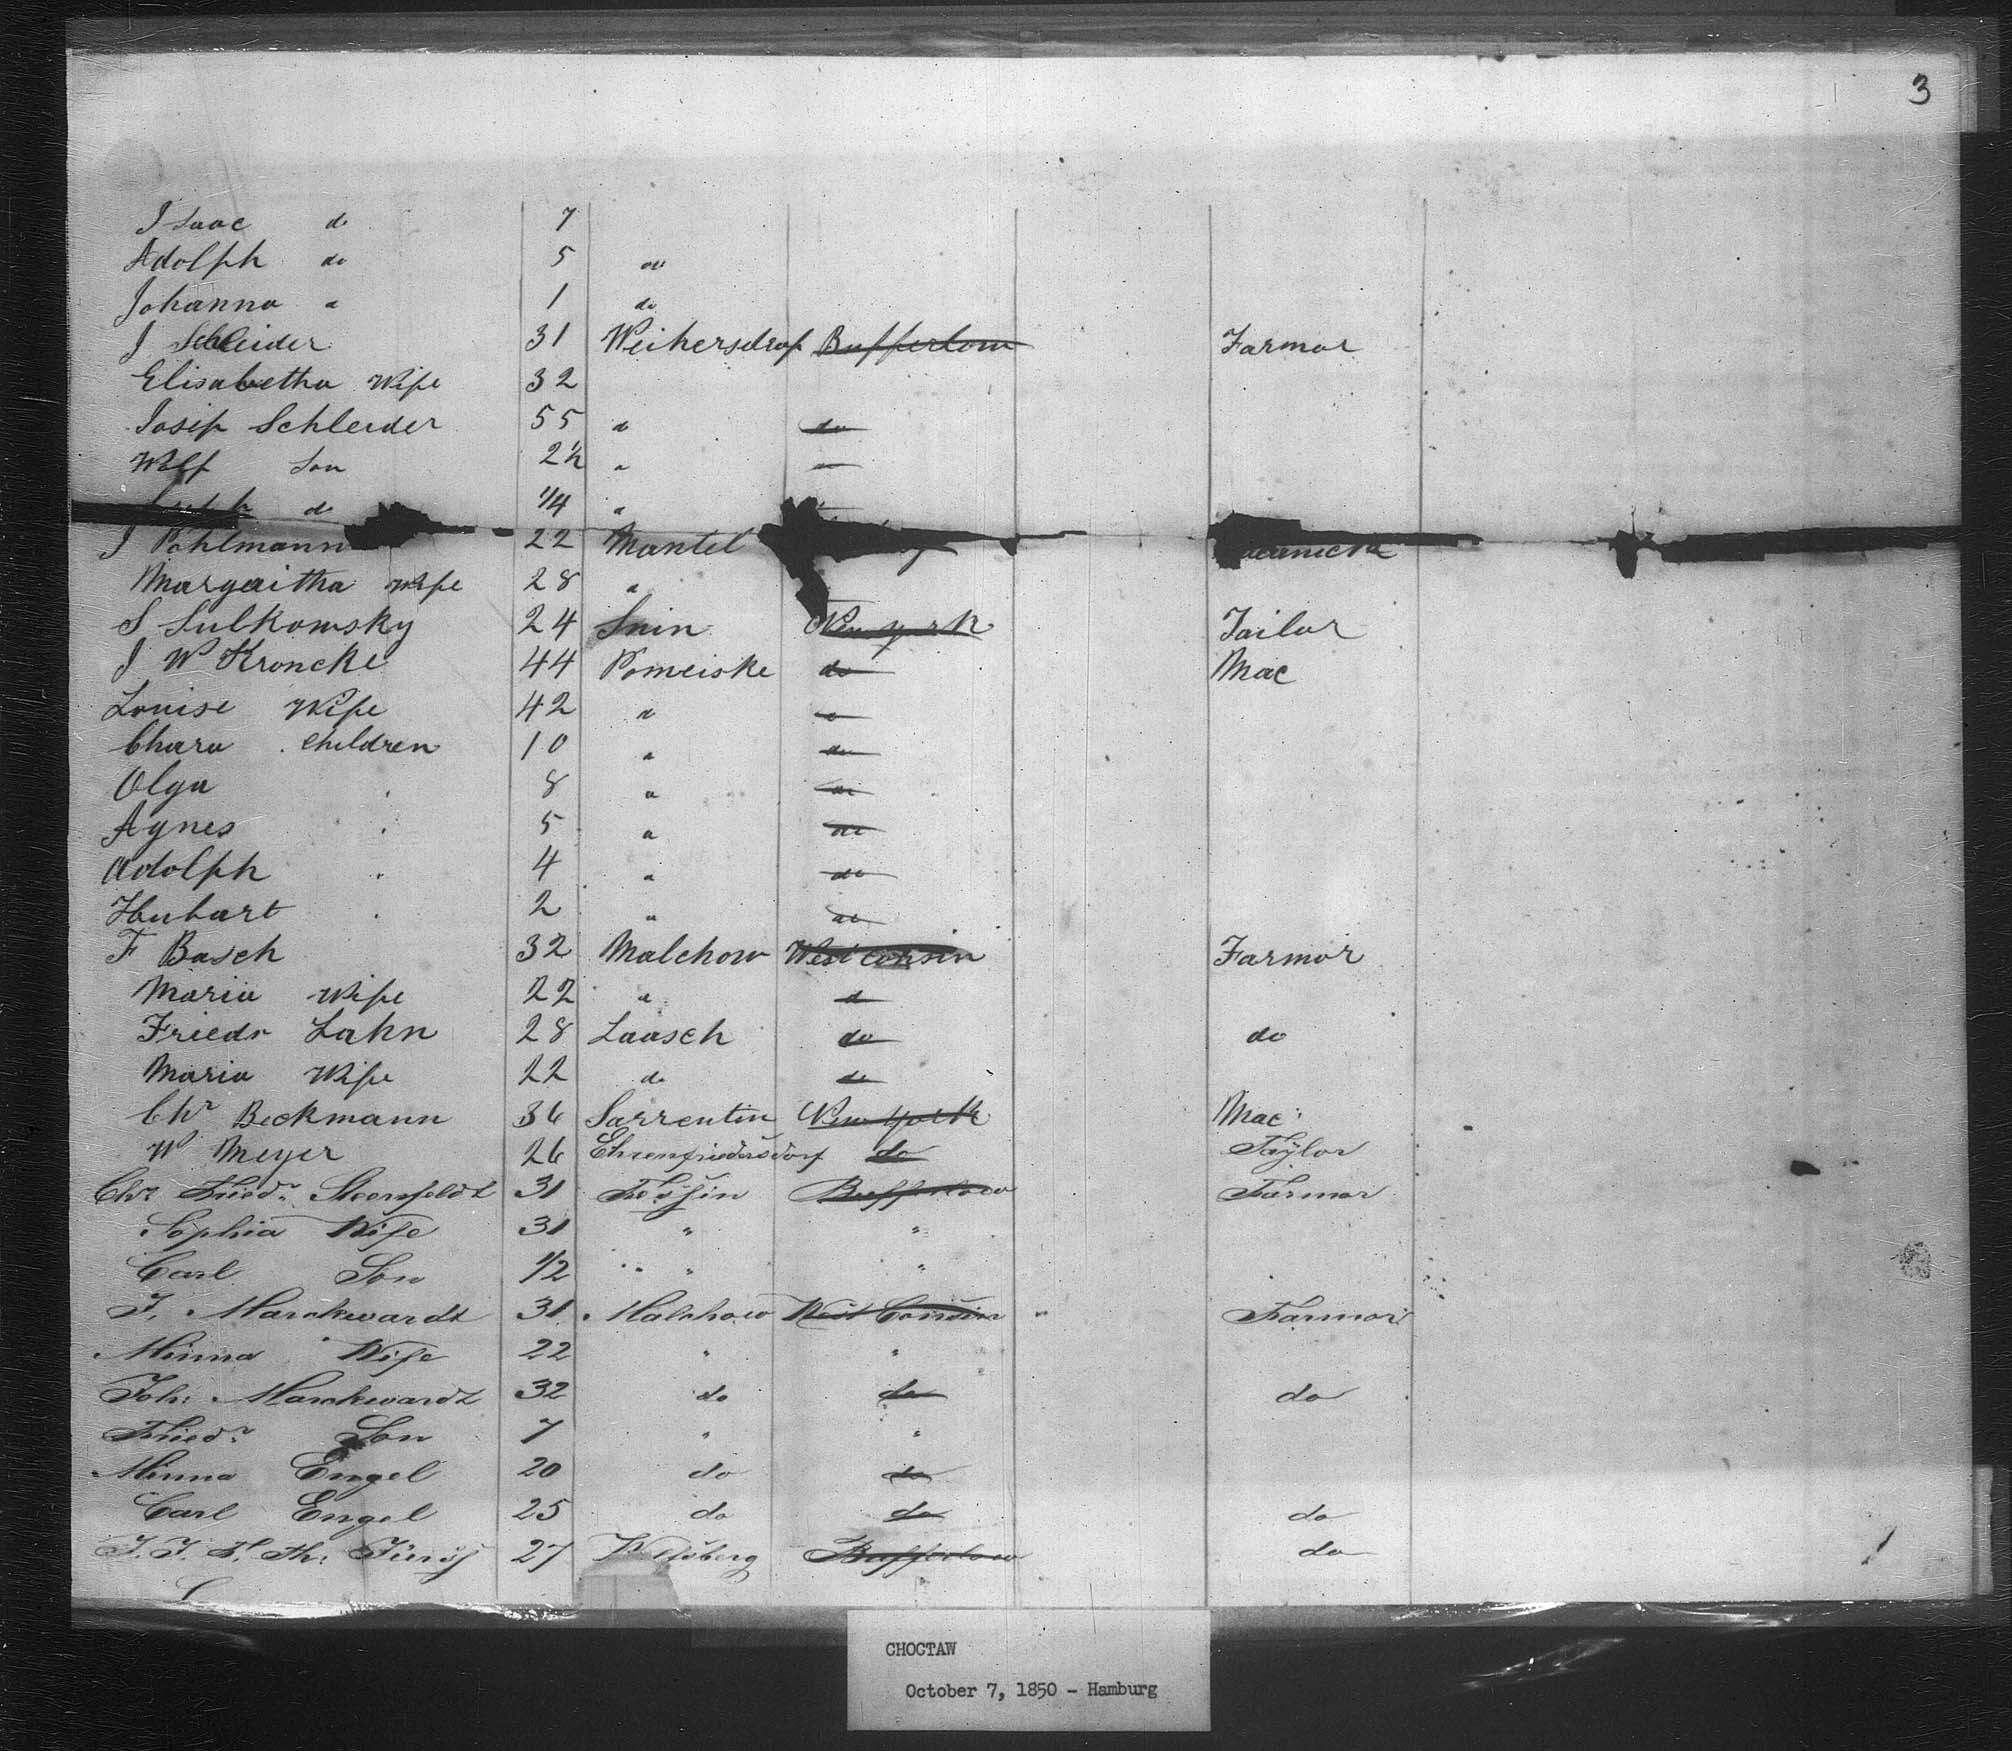 3
Isaac do 7
Adolph do 5 do
Johanna " 1 do
J Schleider 31 Weihersdrof Bufferlow Farmor
Elisabetha Wife 32
Josip Schleider 55 " do
Wolf Son 2½ " "
do 1/4 "
J Pohlmann 22 Mantel
Margaitha Wife 28 "
S Sulkowsky 24 Snin New york Tailor
J W Kroncke 44 Pomeiske do Mac
Louise Wife 42 " "
Chara children 10 " do
Olga " 8 " do
Agnes " 5 " do
Adolph " 4 " do
Hubart " 2 " do
F Basch 32 Malchow West consin Farmor
Maria Wife 22 " d
Friedr Lahn 28 Laasch do do
Maria Wife 22 do do
Chr Beckmann 36 Sarrentin New york Mac
W Meyer 26 Ehrenfriedersdorf do Taylor
Chr Friedr Steenfeldt 31 Tessin Bufferlow Farmor
Sophia Wife 31 " "
Carl Son 1/2 " "
F. Marckwardt 31 Malchow West Consin Farmor
Minna Wife 22 " "
Joh: Marckwardt 32 do do do
Friedr Son 7 " "
Minna Engel 20 do do
Carl Engel 25 do do do
27 Bufferlow do
CHOCTAW
October 7, 1850 - Hamburg